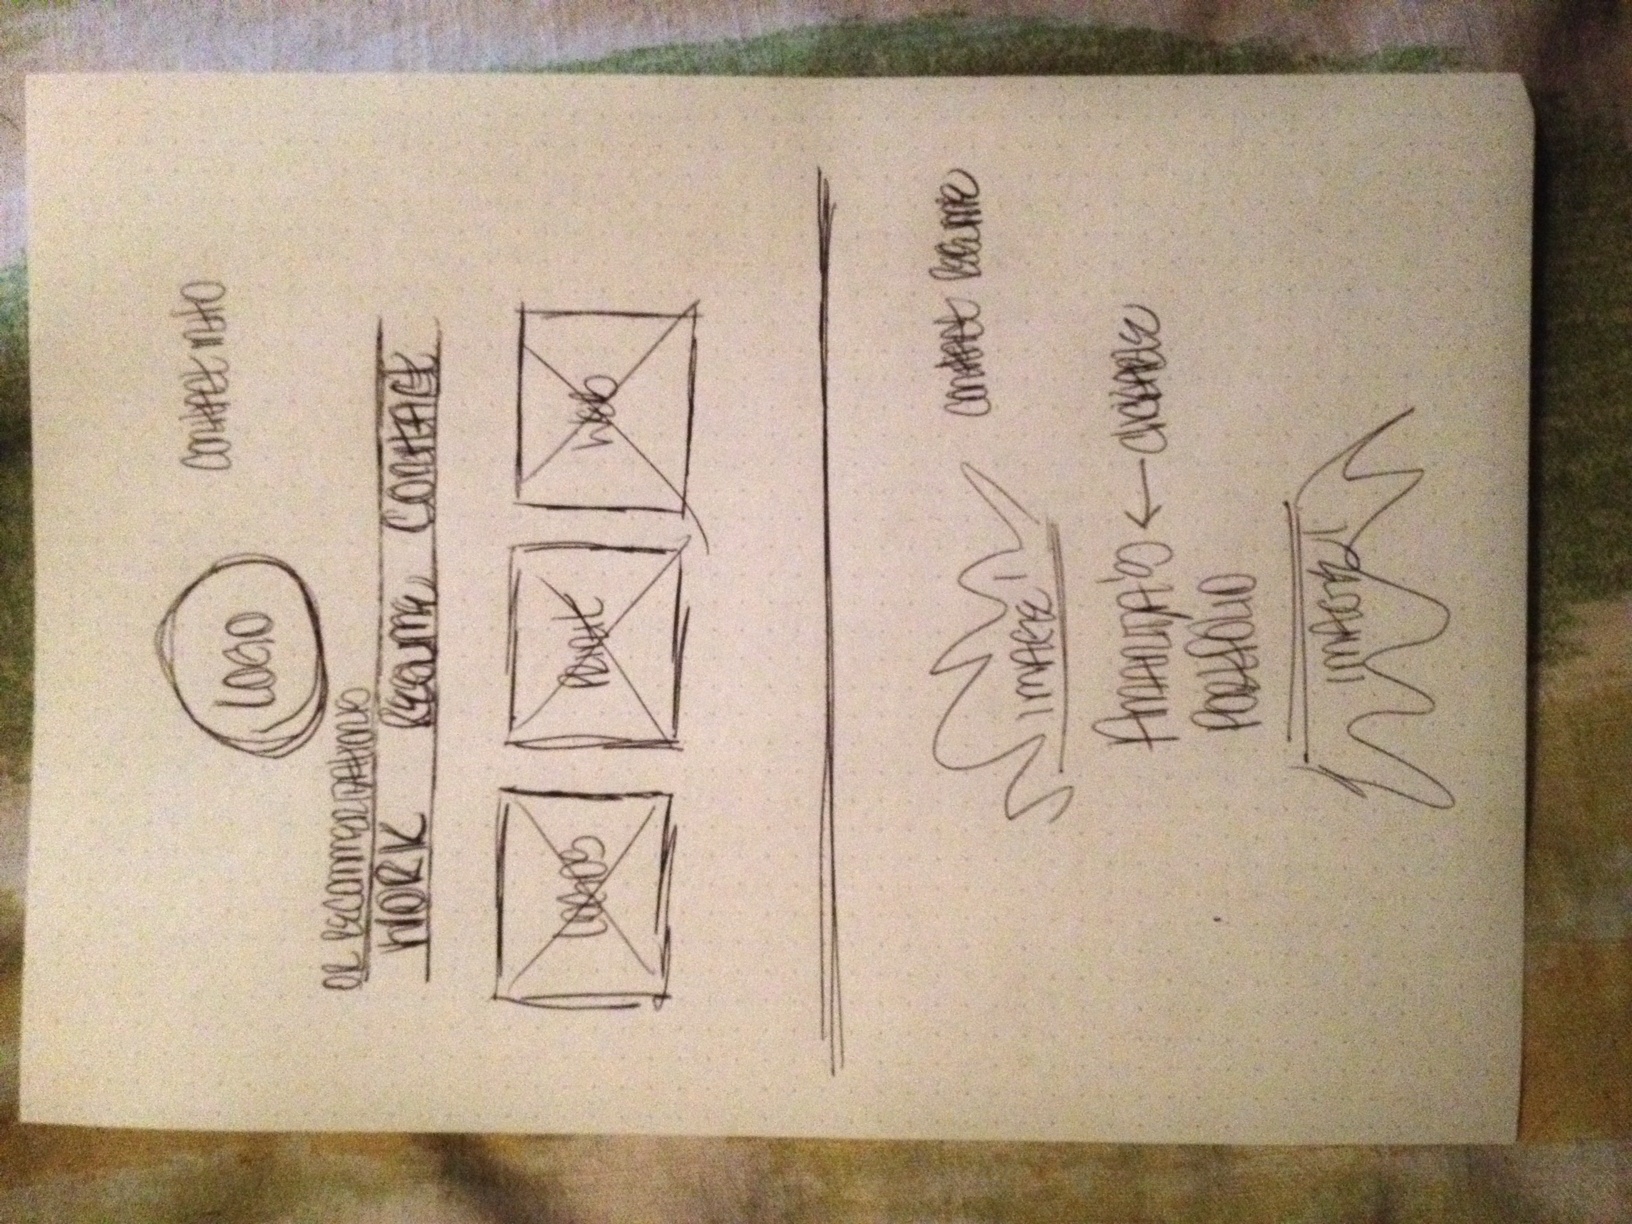 LOGO
CONTACT INFO
OR RECOMMENDATIONS
WORK RESUME CONTACT
LOGOS PRINT WEB
CONTACT RESUME
IMAGE!
AMANDA'S ← CLICKABLE
PORTFOLIO
IMAGE!